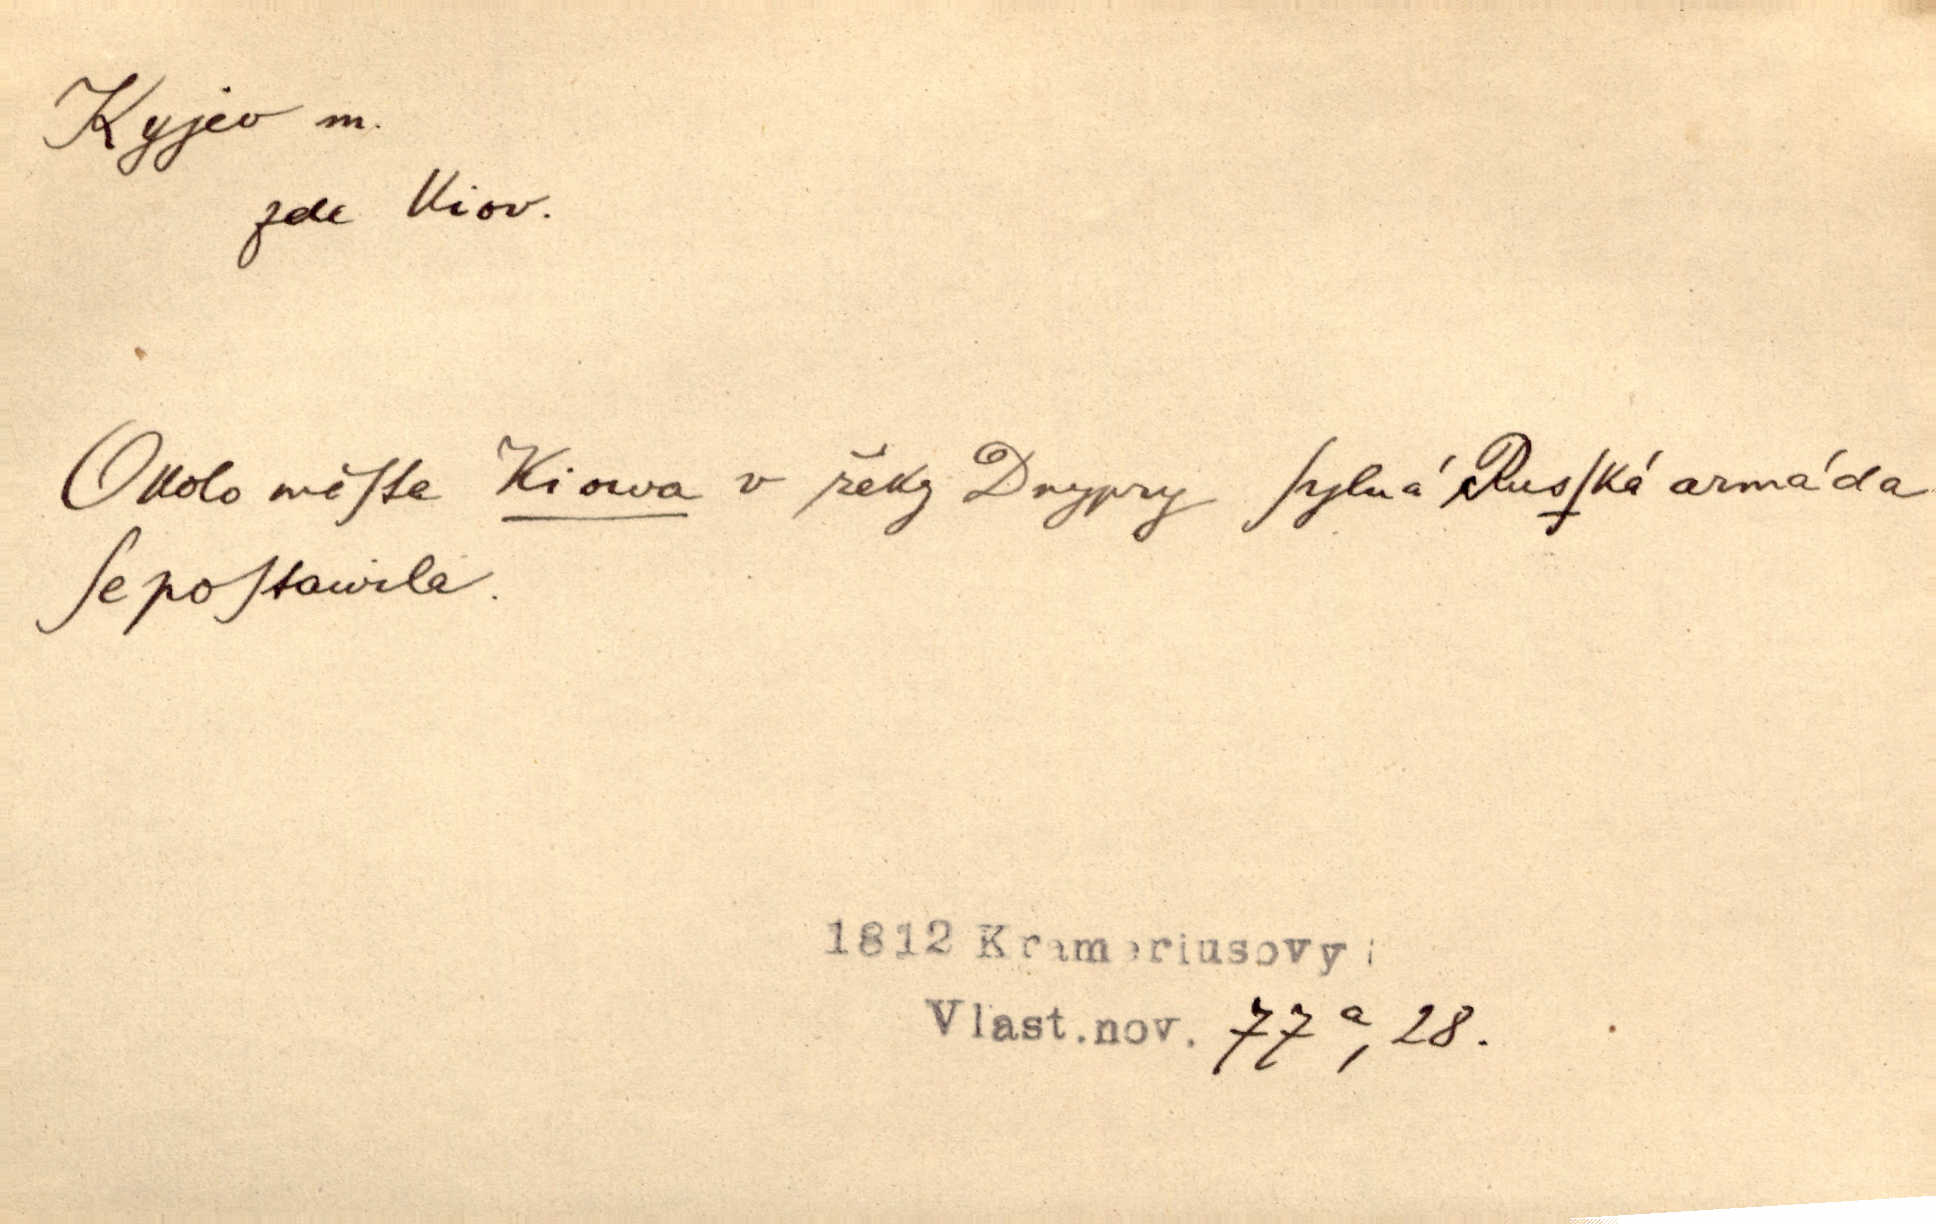 Kyjev m.
zde Kiov.
Okolo měſta Kiowa v řeky Dnypry ſylná Rusſká armáda
ſe poſtawila.
1812 Krameriusovy
Vlast.nov. 77a, 28.